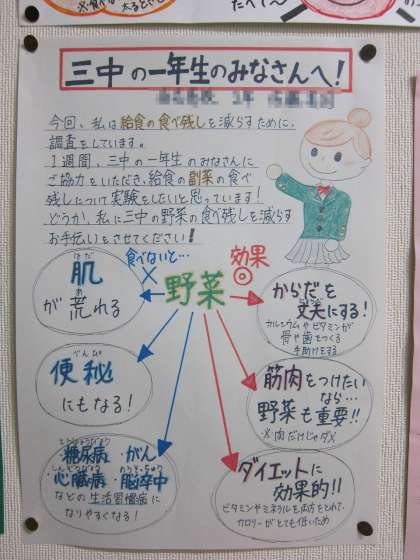 三中の一年生のみなさんへ!
今回、私は給食の食べ残しを減らすために、
調査をしています。
1週間、三中の一年生のみなさんに
ご協力をいただき、給食の副菜の食べ
残しについて実験をしたいと思っています!
どうか、私に三中の野菜の食べ残しを減らす
お手伝いをさせてください!
食べないと…
×
効果
◎
野菜
はだ
肌
あ
が荒れる
べんぴ
便秘
にもなる!
とうにょうびょう
糖尿病・がん
しんぞうびょう のうそっちゅう
心臓病・脳卒中
などの生活習慣病に
なりやすくなる!
からだを
丈夫にする!
カルシウムやビタミンが
骨や歯をつくる
手助けをする
筋肉をつけたい
なら…
野菜も重要!!
※肉だけじゃダメ
ダイエットに
効果的!!
ビタミンやミネラルを両方とれて、
カロリーがとても低いため